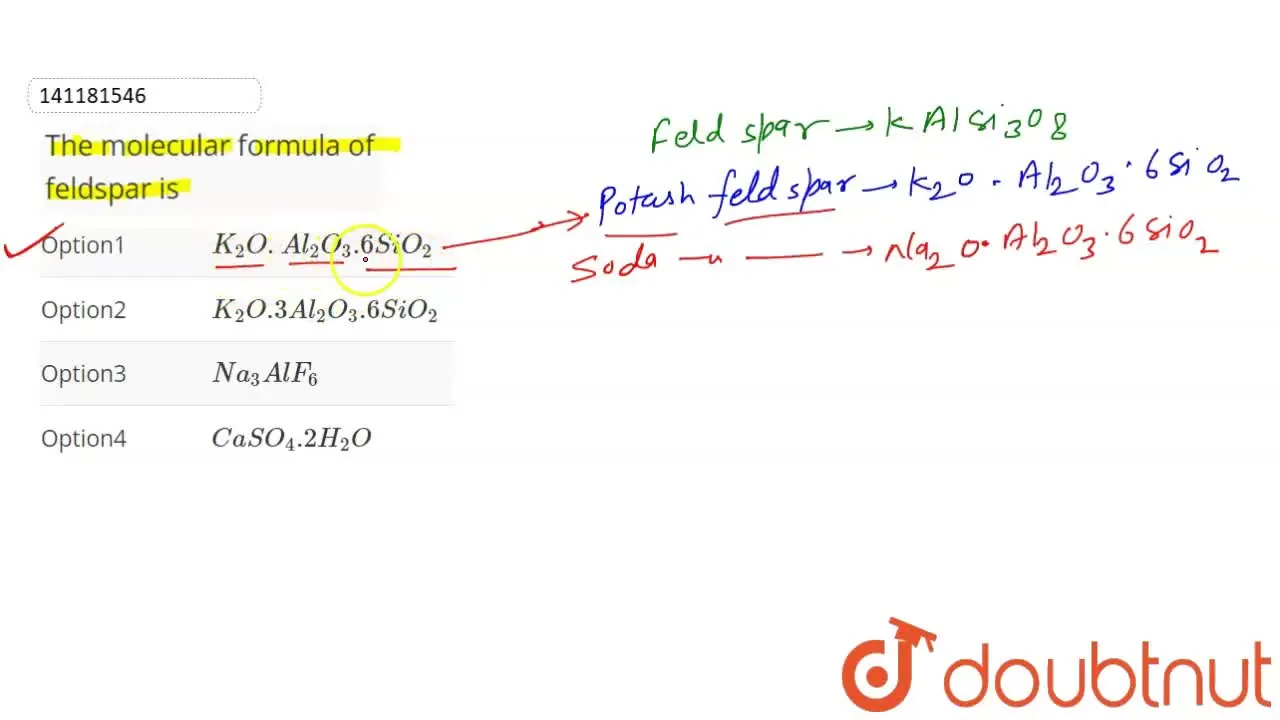 141181546
The molecular formula of
feldspar is
Option1 K₂O. Al₂O₃.6SiO₂
Option2 K₂O.3Al₂O₃.6SiO₂
Option3 Na₃AlF₆
Option4 CaSO₄.2H₂O
Feld spar → KAlSi₃O8
Potash feldspar → K₂O · Al₂O₃ · 6SiO₂
Soda —〃— → Na₂O · Al₂O₃ · 6SiO₂
doubtnut